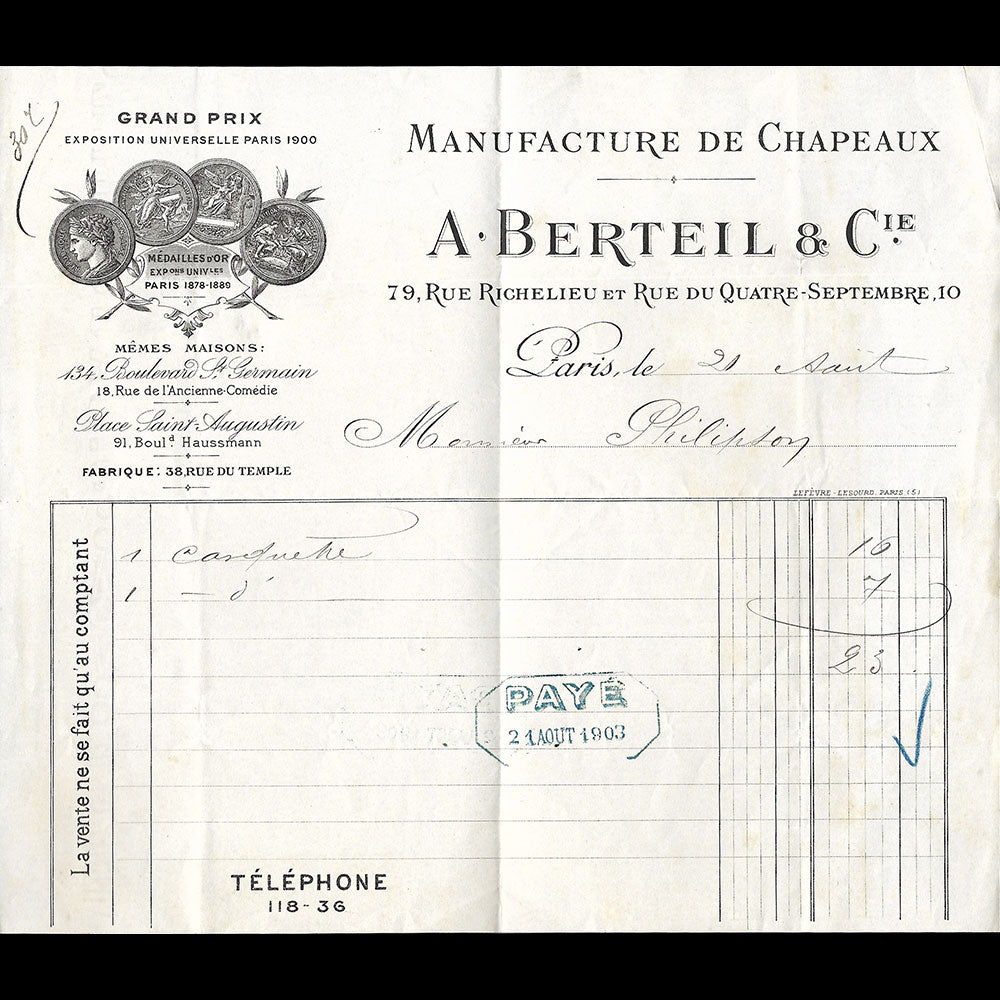 307
GRAND PRIX
EXPOSITION UNIVERSELLE PARIS 1900
MÉDAILLES D'OR
EXPONS UNIVLES
PARIS 1878-1889
MÊMES MAISONS:
134, Boulevard St Germain
18, Rue de l'Ancienne-Comédie
Place Saint-Augustin
91, Bould Haussmann
FABRIQUE: 38, RUE DU TEMPLE
MANUFACTURE DE CHAPEAUX
A. BERTEIL & CIE.
79, RUE RICHELIEU ET RUE DU QUATRE-SEPTEMBRE, 10
Paris, le 21 Août
Monsieur Philipson
LEFÈVRE-LESOURD. PARIS (5)
La vente ne se fait qu'au comptant
1 casquette 16
1 — d° 7
23
PAYÉ
21 AOUT 1903
TÉLÉPHONE
118-36